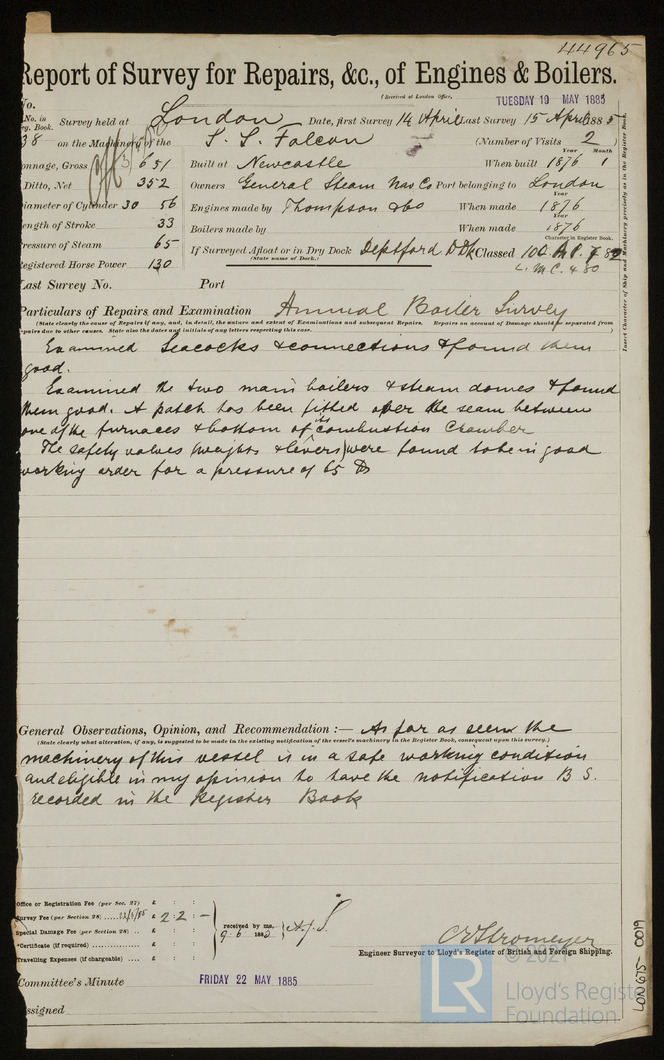 44965
Report of Survey for Repairs, &c., of Engines & Boilers.
(Received at London Office,
TUESDAY 19 MAY 1885
No.
No. in
Reg. Book.
Survey held at London Date, first Survey 14 April Last Survey 15 April 1885
38 on the Machinery of the S. S. Falcon (Number of Visits 2 )
Year Month
Tonnage, Gross 651 Built at Newcastle When built 1876 1
Ditto, Net 352 Owners General Steam Nav Co Port belonging to London
Year
Diameter of Cylinder 30 56 Engines made by Thompson & Co When made 1876
Year
Length of Stroke 33 Boilers made by When made 1876
Character in Register Book.
Pressure of Steam 65 If Surveyed Afloat or in Dry Dock Deptford D Dk Classed 100 A
(State name of Dock.)
Registered Horse Power 130 L. M C. 4 80
Last Survey No. Port
Particulars of Repairs and Examination Annual Boiler Survey
(State clearly the cause of Repairs if any, and, in detail, the nature and extent of Examinations and subsequent Repairs. Repairs on account of Damage should be separated from
repairs due to other causes. State also the dates and initials of any letters respecting this case. )
Examined Seacocks & connections & found them
good.
Examined the two main boilers & steam domes & found
them good. A patch has been fitted over the seam between
one of the furnaces & bottom of its combustion Chamber
The safety valves (weights & levers) were found to be in good
working order for a pressure of 65 lbs
General Observations, Opinion, and Recommendation :— As far as seen the
(State clearly what alteration, if any, is suggested to be made in the existing notification of the vessel's machinery in the Register Book, consequent upon this survey.)
machinery of this vessel is in a safe working condition
and eligible in my opinion to have the notification B S.
recorded in the Register Book
Insert Character of Ship and Machinery precisely as in the Register Book.
Office or Registration Fee (per Sec. 27) £ : :
Survey Fee (per Section 28) £ 2 : 2 : —
Special Damage Fee (per Section 28) .. £ : :
*Certificate (if required) £ : :
Travelling Expenses (if chargeable) £ : :
received by me,
9. 6 188
A. J. S.
C E Stromeyer
Engineer Surveyor to Lloyd's Register of British and Foreign Shipping.
Committee's Minute FRIDAY 22 MAY 1885
Assigned
LON 675- 0019
LR
© 2021
Lloyd's Register
Foundation